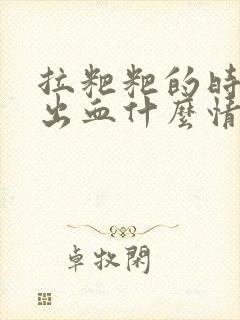 拉粑粑的時
出血什麼情
卓牧閑